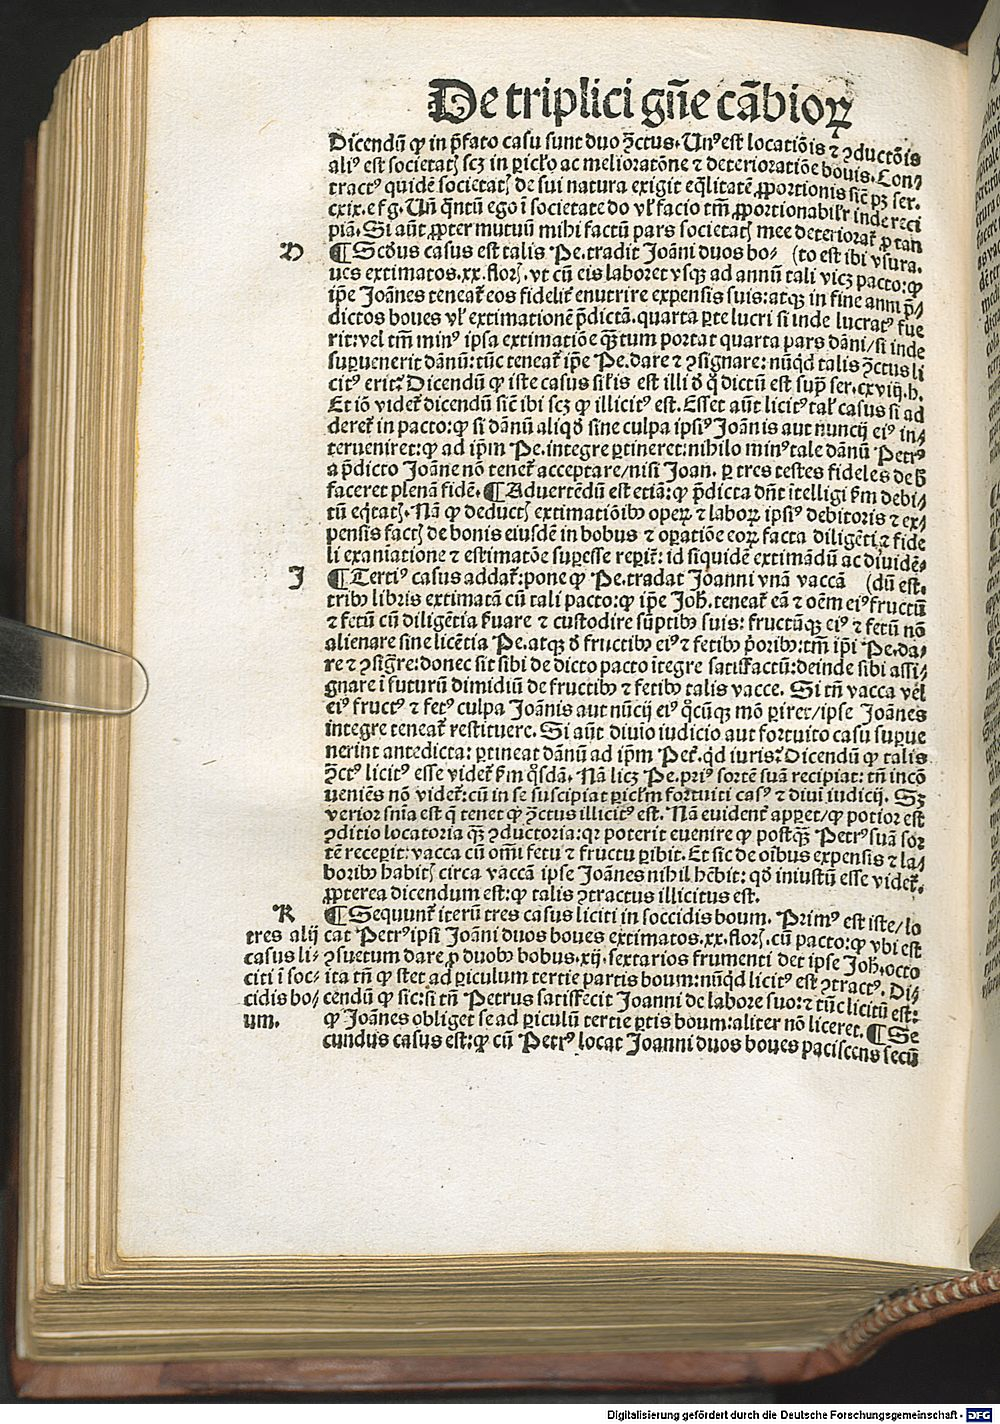 De triplici gn̄e cābioꝝ
Dicendū ꝙ in p̄fato casu sunt duo ꝯctus. Unꝰ est locatiōis ⁊ ꝯductōis
aliꝰ est societatꝭ scꝫ in ꝑicl̓o ac melioratōne ⁊ deterioratiōe bouis. Con⸗
tractꝰ quidē societatꝭ de sui natura exigit eq̄litatē ꝓportionis sic̄ pꝫ ser.
cxix. e f g. Un̄ q̄ntū ego ī societate do vl̓ facio tm̄ ꝓportionabilr̓ inde reci
piā. Si aūt ꝓpter mutuū mihi factū pars societatꝭ mee deteriorat̄ ꝑ tan
D
¶ Scd̓us casus est talis Pe. tradit Joāni duos bo⸗ (to est ibi vsura.
ues extimatos .xx. florꝭ. vt cū eis laboret vsqꝫ ad annū tali vicꝫ pacto: ꝙ
ip̄e Joānes teneat̄ eos fidelit̓ enutrire expensis suis: atqꝫ in fine anni p̄⸗
dictos boues vl̓ extimationē p̄dictā. quarta ꝑte lucri si inde lucratꝰ fue
rit: vel tm̄ minꝰ ipsa extimatiōe qꝫtum portat quarta pars dāni/ si inde
suꝑuenerit dānū: tūc teneat̄ ip̄e Pe. dare ⁊ ꝯsignare: nūqd̓ talis ꝯctus li
citꝰ erit? Dicendū ꝙ iste casus sil̓is est illi ð q̊ dictū est sup̄ ser. cxviij. h.
Et iō videt̄ dicendū sic̄ ibi scꝫ ꝙ illicitꝰ est. Esset aūt licitꝰ tal̓ casus si ad
deret̄ in pacto: ꝙ si dānū aliqð sine culpa ipsiꝰ Joānis aut nuncij eiꝰ in⸗
terueniret: ꝙ ad ip̄m Pe. integre ꝑtineret: nihilo minꝰ tale dānū Petrꝰ
a p̄dicto Joāne nō tenet̄ acceptare/ nisi Joan. ꝑ tres testes fideles de h̄
faceret plenā fidē. ¶ Aduertēdū est etiā: ꝙ p̄dicta dn̄t ītelligi ẜm debi⸗
tū eq̄tatꝭ. Nā ꝙ deductꝭ extimatiōibꝰ operꝝ ⁊ laborꝝ ipsiꝰ debitoris ⁊ ex⸗
pensis factꝭ de bonis eiusdē in bobus ⁊ oꝑatiōe eorꝝ facta diligēti ⁊ fide
li examinatione ⁊ estimatōe suꝑesse reꝑit̄: id siquidē extimādū ac diuidē⸗
J
¶ Tertiꝰ casus addat̄: pone ꝙ Pe. tradat Joanni vnā vaccā (dū est.
tribꝰ libris extimatā cū tali pacto: ꝙ ip̄e Joh̄. teneat̄ eā ⁊ oēm eiꝰ fructū
⁊ fetū cū diligētia ẜuare ⁊ custodire sūptibꝰ suis: fructūqꝫ eiꝰ ⁊ fetū nō
alienare sine licētia Pe. atqꝫ ð fructibꝰ eiꝰ ⁊ fetibꝰ p̓oribꝰ: tm̄ ip̄i Pe. da⸗
re ⁊ ꝯsig̓re: donec sit sibi de dicto pacto ītegre satisfactū: deinde sibi assi⸗
gnare ī futurū dimidiū de fructibꝰ ⁊ fetibꝰ talis vacce. Si tn̄ vacca vel
eiꝰ fructꝰ ⁊ fetꝰ culpa Joānis aut nūcij eiꝰ q̊cūqꝫ mō ꝑiret/ ipse Joānes
integre teneat̄ restituere. Si aūt diuio iudicio aut fortuito casu suꝑue
nerint antedicta: ꝑtineat dānū ad ip̄m Pet̓. qd̓ iuris? Dicendū ꝙ talis
ꝯctꝰ licitꝰ esse videt̄ ẜm q̊sdā. Nā licꝫ Pe. priꝰ sortē suā recipiat: tn̄ incō
ueniēs nō videt̄: cū in se suscipiat ꝑicl̓m fortuiti casꝰ ⁊ diui iudicij. Sꝫ
verior snīa est q̄ tenet ꝙ ꝯctus illicitꝰ est. Nā euident̓ apꝑet/ ꝙ potior est
ꝯditio locatoria qꝫ ꝯductoria: qꝛ poterit euenire ꝙ postqꝫ Petrꝰ suā sor
tē receꝑit: vacca cū om̄i fetu ⁊ fructu ꝑibit. Et sic de oībus expensis ⁊ la⸗
boribꝰ habitꝭ circa vaccā ipse Joānes nihil hēbit: qð iniustū esse videt̄.
ꝓpterea dicendum est: ꝙ talis ꝯtractus illicitus est.
K
tres alij
casus li⸗
citi ī soc⸗
cidis bo⸗
um.
¶ Sequunt̄ iterū tres casus liciti in soccidis boum. Primꝰ est iste/ lo
cat Petrꝰ ipsi Joāni duos boues extimatos .xx. florꝭ. cū pacto: ꝙ vbi est
ꝯsuetum dare ꝓ duobꝰ bobus .xij. sextarios frumenti det ipse Joh̄. octo
ita tn̄ ꝙ stet ad ꝑiculum tertie partis boum: nūqd̓ licitꝰ est ꝯtractꝰ. Di⸗
cendū ꝙ sic: si tn̄ Petrus satisfecit Joanni de labore suo: ⁊ tūc licitū est:
ꝙ Joānes obliget se ad ꝑiculū tertie ꝑtis boum: aliter nō liceret. ¶ Se
cundus casus est: ꝙ cū Petrꝰ locat Joanni duos boues paciscens secū
Digitalisierung gefördert durch die Deutsche Forschungsgemeinschaft - DFG